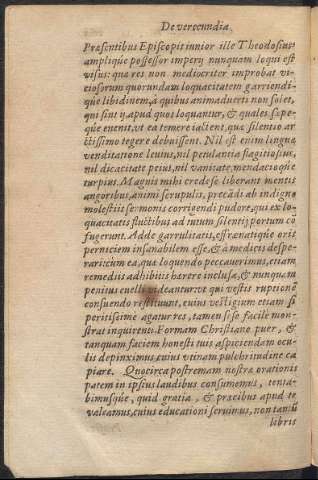 De verecundia
Præsentibus Episcopis iunior ille Theodosius
amplique possessor imperij nunquam loqui est
visus: quæ res non mediocriter improbat vi-
ciosorum quorundam loquacitatem garriendi-
que libidinem, à quibus animaduerti non solet,
qui sint ij, apud quos loquantur, & quales sæpe-
que euenit, vt ea temere iactent, quæ silentio ar-
ctissimo tegere debuissent. Nil est enim lingua
venditatione leuius, nil petulantia flagitiosius,
nil dicacitate peius, nil vanitate, mendacioque
turpius. Magnis mihi crede se liberant mentis
angoribus, animi scrupulis, precandi ab indigno
molestiis sermonis corrigendi pudore, qui ex lo-
quacitatis fluctibus ad unum silentij portum cō
fugerunt. Adde garrulitatis, effrænatæque orit
perniciem insanabilem esse, & à medicis despe-
rari: tùm ea, quæ loquendo peccauerimus, etiam
remediis adhibitis hærere inclusa, & nunquam
penitus euelli:
videantur vt qui vestis ruptionē
consuendo restituunt, cuius vestigium etiam si
peritissime agatur res, tamen sese facile mon-
strat inquirenti. Formam Christiane puer, &
tanquam faciem honesti tuis aspiciendam ocu-
lis depinximus, cuius vtinam pulchritudine ca
piare. Quocirca postremam nostræ orationis
patem in ipsius laudibus consumemus, tenta-
bimusque, quid gratia, & præcibus apud te
valeamus, cuius educationi seruimus, non tamē
libris